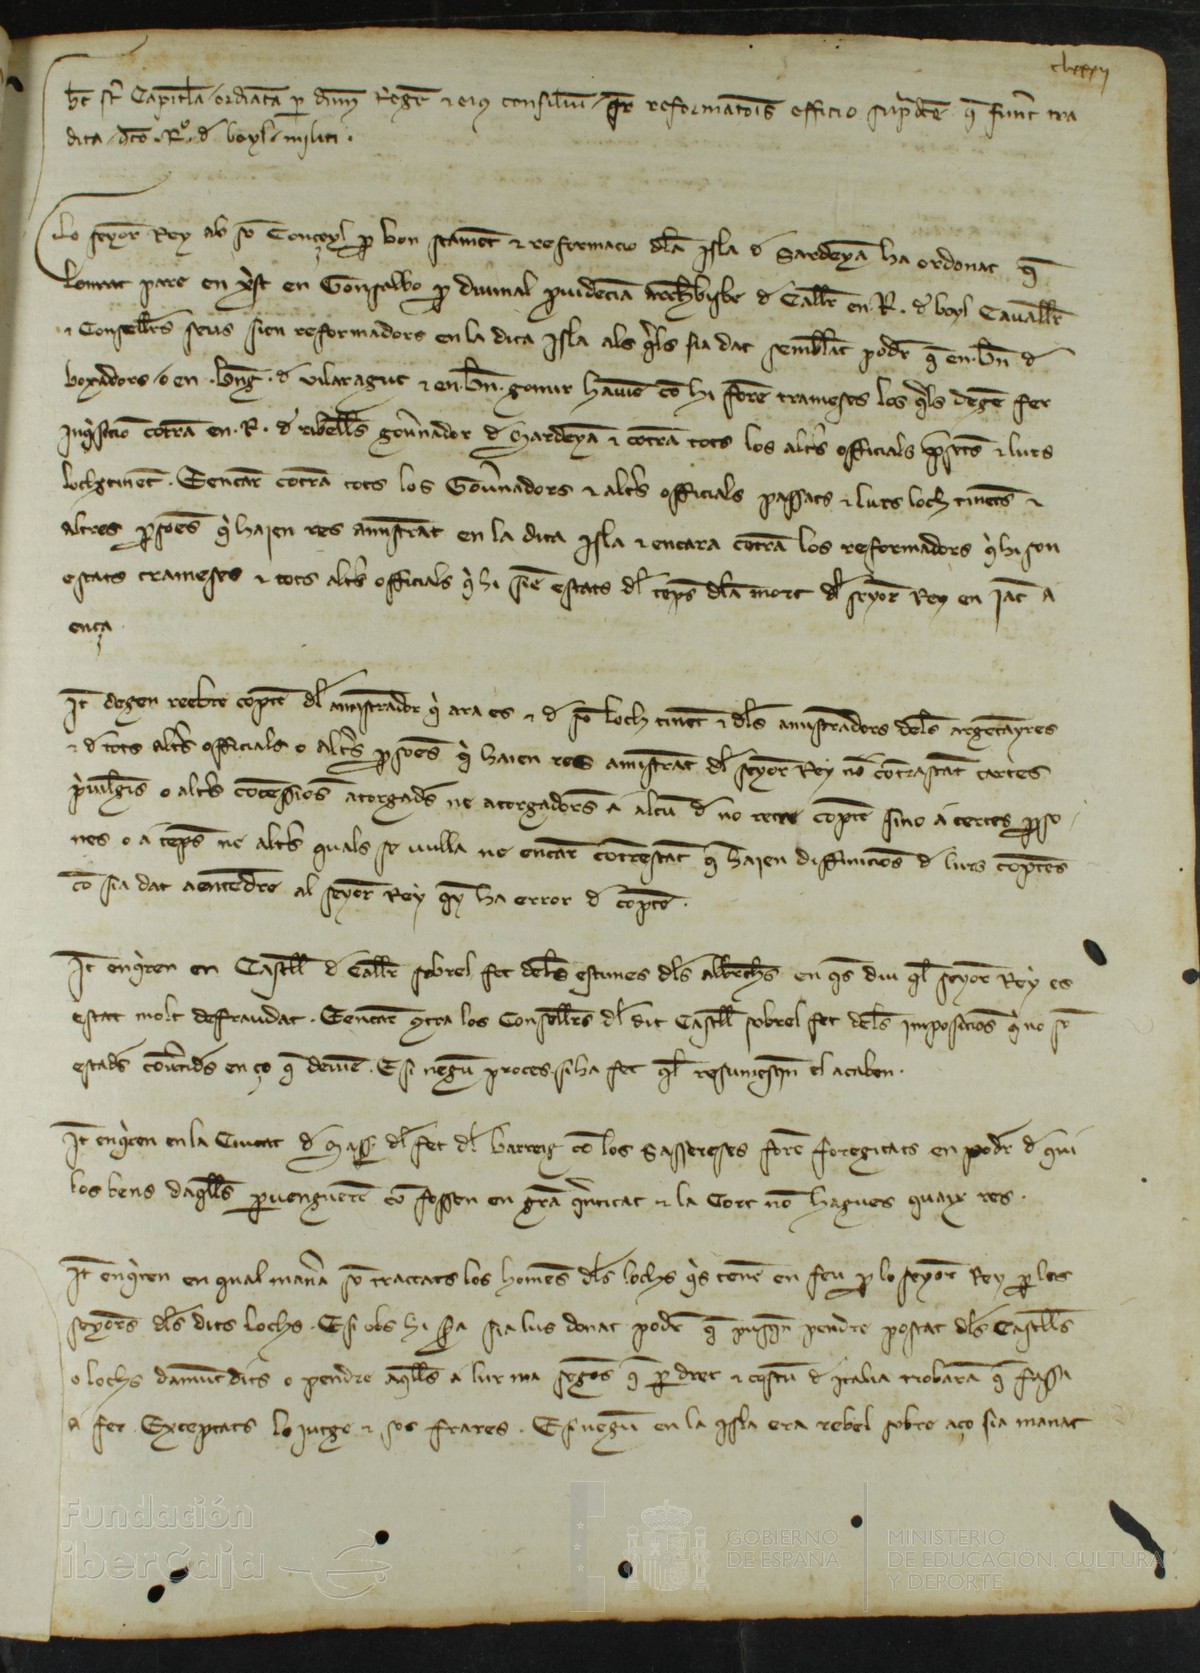 clxxxij
hec st Capitla ordinata p dnm Rege & eius consiliu sr reformatois officio supdce q funt tra
dita dco R.º d boyl militi.
Lo seyor Rey ab so Conseyl p bon stament & reformacio dla Isla d Sardeya ha ordonat q
lonrat pare en xst en Gonsalbo p diuinal puidecia archbisbe d Callr en R. d boyl Cauallr
& Consellrs seus sien reformadors en la dita Isla als qls sia dat semblat poder q en bn d
boxadors o en bng d vilaragut & en bn gomir hauie co hi fore trameses los qls dege fer
Inqisicio cotra en R. d ribells gounador d Sardeya & cotra tots los altrs officials psets & lurs
lochtinet. Eencar cotra tots los Gounadors & altrs officials passats & lurs loch tinets &
altres psoes q haien res amistrat en la dita Isla & encara cotra los reformadors q hi son
estats trameses & tots altrs officials q hi sie estats dl teps dla mort dl seyor Rey en Jac a
ença
It degen reebre copte dl amistrador q ara es & d so loch tinet & dls amistradors dels argetayres
& d tots altrs officials o altrs psoes q haien res amistrat dl seyor Rey no cotrastat cartes
puilgis o altrs cocessios atorgads ne atorgadors a alcu d no retre copte sino a certes pso
nes o a teps ne altrs quals se vulla ne encar cotrestat q haien diffinicios d lurs coptes
co sia dat aentedre al seyor Rey qy ha error d copte.
It enqren en Castll d Callr sobrel fet dels estimes dls albrchs en qs diu ql seyor Rey es
estat molt defraudat. Eencar cotra los Consellrs dl dit Castll sobrel fet dels imposicios q no so
estads coutids en ço q deuie. E si negu proces si ha fet ql resumesqn el acaben.
It enqren en la Ciutat d Sasser dl fet dl barreig co los Sassereses fore foregitats en poder d qui
los bens daqlls puengueren co fossen en gra qntitat & la Cort no hagues quaix res.
It enqren en qual mana so tractats los homes dls lochs qs tene en feu p lo seyor Rey p los
seyors dls dits lochs. E si obs hi sa sia lus donat poder q pusqn pendre postat dls Castells
o lochs damut dits o pendre aqlls a lur ma segos q p dret & costu d Italia trobara q fassa
a fer. Exceptats lo jutge & sos frares. E si negu en la Isla era rebel sobre aço sia manat
Fundación
iberCaja
GOBIERNO
DE ESPAÑA
MINISTERIO
DE EDUCACIÓN, CULTURA
Y DEPORTE